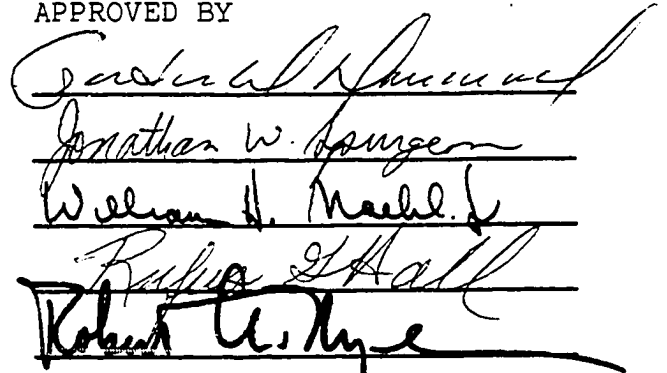 APPROVED BY
Jonathan W. Spurgeon
William H. Maehl. Jr
Rufus G Hall
Robert A. Nye